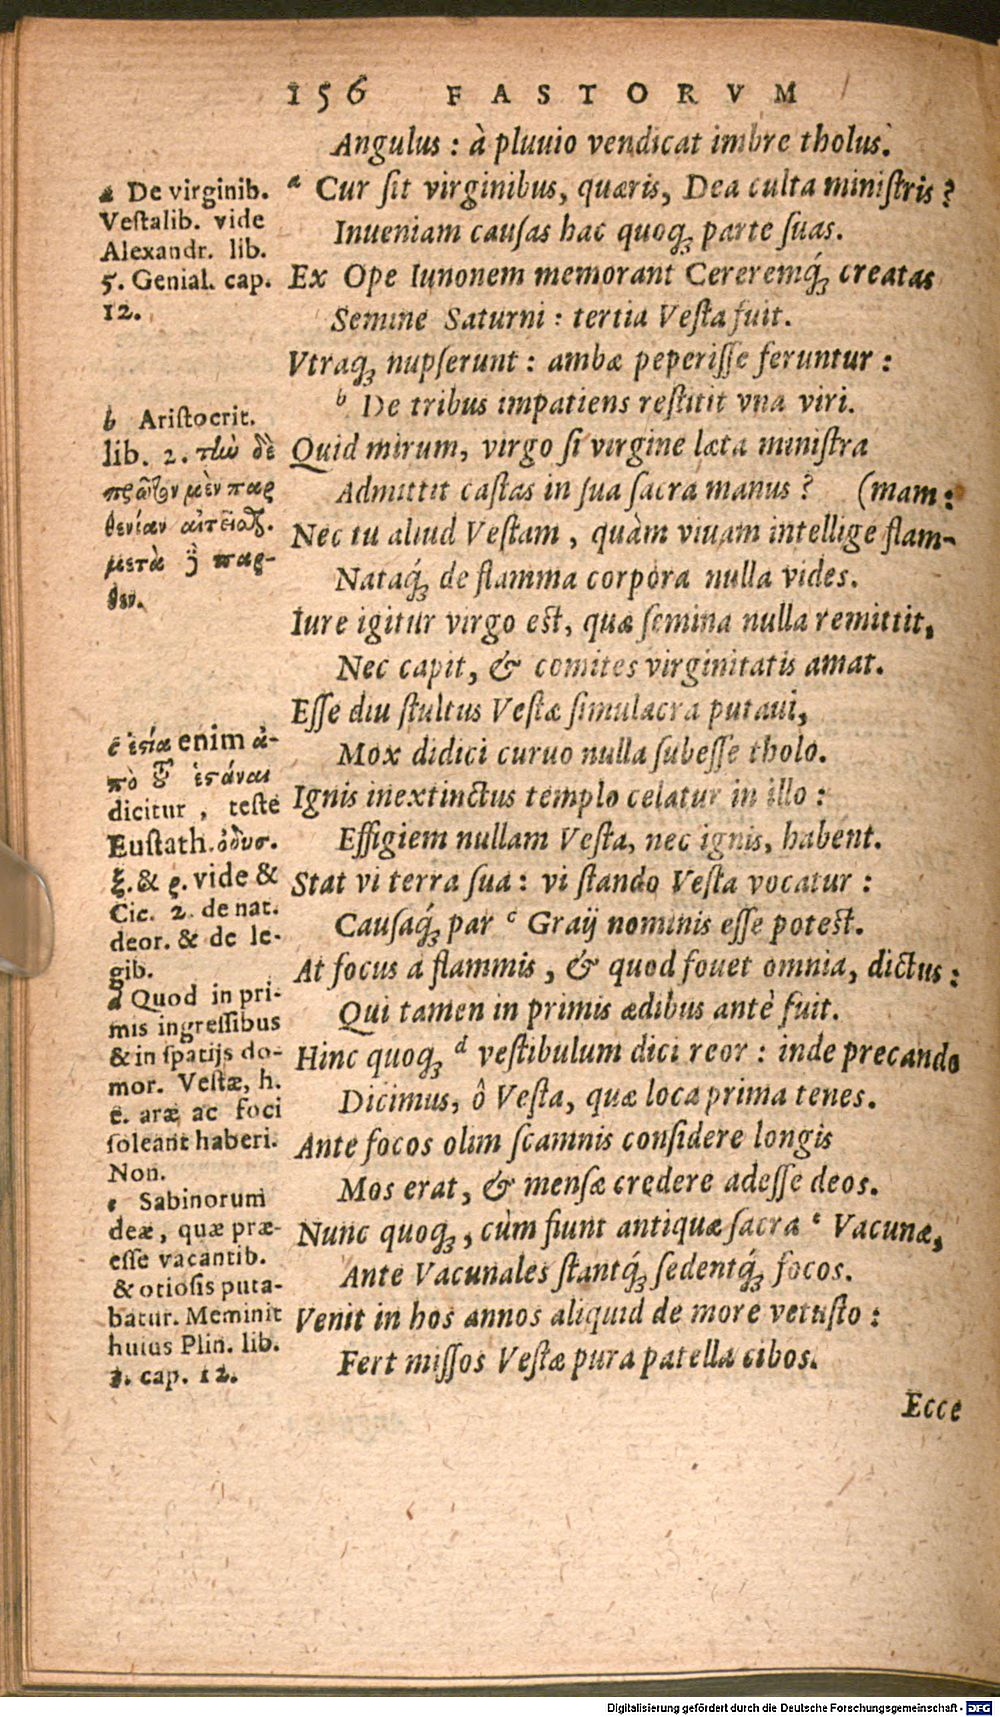 156 FASTORVM
Angulus : à pluuio vendicat imbre tholus.
a Cur sit virginibus, quæris, Dea culta ministris ?
Inueniam causas hac quoq; parte suas.
Ex Ope Iunonem memorant Cereremq́; creatas
Semine Saturni : tertia Vesta fuit.
Vtraq; nupserunt : ambæ peperisse feruntur :
b De tribus impatiens restitit vna viri.
Quid mirum, virgo si virgine læta ministra
Admittit castas in sua sacra manus ? (mam :
Nec tu aliud Vestam, quàm viuam intellige flam-
Nataq́; de flamma corpora nulla vides.
Iure igitur virgo est, quæ semina nulla remittit,
Nec capit, & comites virginitatis amat.
Esse diu stultus Vestæ simulacra putaui,
Mox didici curuo nulla subesse tholo.
Ignis inextinctus templo celatur in illo :
Effigiem nullam Vesta, nec ignis, habent.
Stat vi terra sua : vi stando Vesta vocatur :
Causaq́; par c Graij nominis esse potest.
At focus a flammis, & quod fouet omnia, dictus :
Qui tamen in primis ædibus antè fuit.
Hinc quoq; d vestibulum dici reor : inde precando
Dicimus, ô Vesta, quæ loca prima tenes.
Ante focos olim scamnis considere longis
Mos erat, & mensæ credere adesse deos.
Nunc quoq;, cùm fiunt antiquæ sacra e Vacunæ,
Ante Vacunales stantq́; sedentq́; focos.
Venit in hos annos aliquid de more vetusto :
Fert missos Vestæ pura patella cibos.
Ecce
a De virginib.
Vestalib. vide
Alexandr. lib.
5. Genial. cap.
12.
b Aristocrit.
lib. 2. τὼ δὲ
μὲν παρ
θενίαν
μετὰ παρ-
θεν.
c ἑστία enim ἀ-
πὸ τοῦ ἑστάναι
dicitur, teste
Eustath. ὀδυσ.
ξ. & ρ. vide &
Cic. 2. de nat.
deor. & de le-
gib.
d Quod in pri-
mis ingressibus
& in spatijs do-
mor. Vestæ, h.
e. aræ ac foci
soleant haberi.
Non.
e Sabinorum
deæ, quæ præ-
esse vacantib.
& otiosis puta-
batur. Meminit
huius Plin. lib.
3. cap. 12.
Digitalisierung gefördert durch die Deutsche Forschungsgemeinschaft - DFG